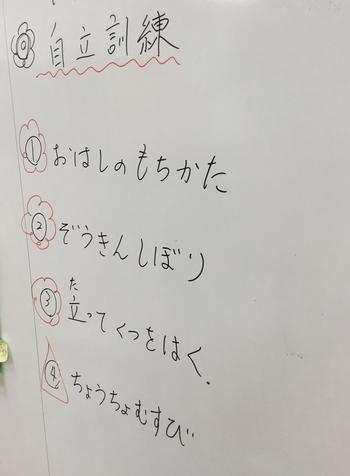 自立訓練
①おはしのもちかた
②ぞうきんしぼり
③立ってくつをはく.
た
④ちょうちょむすび